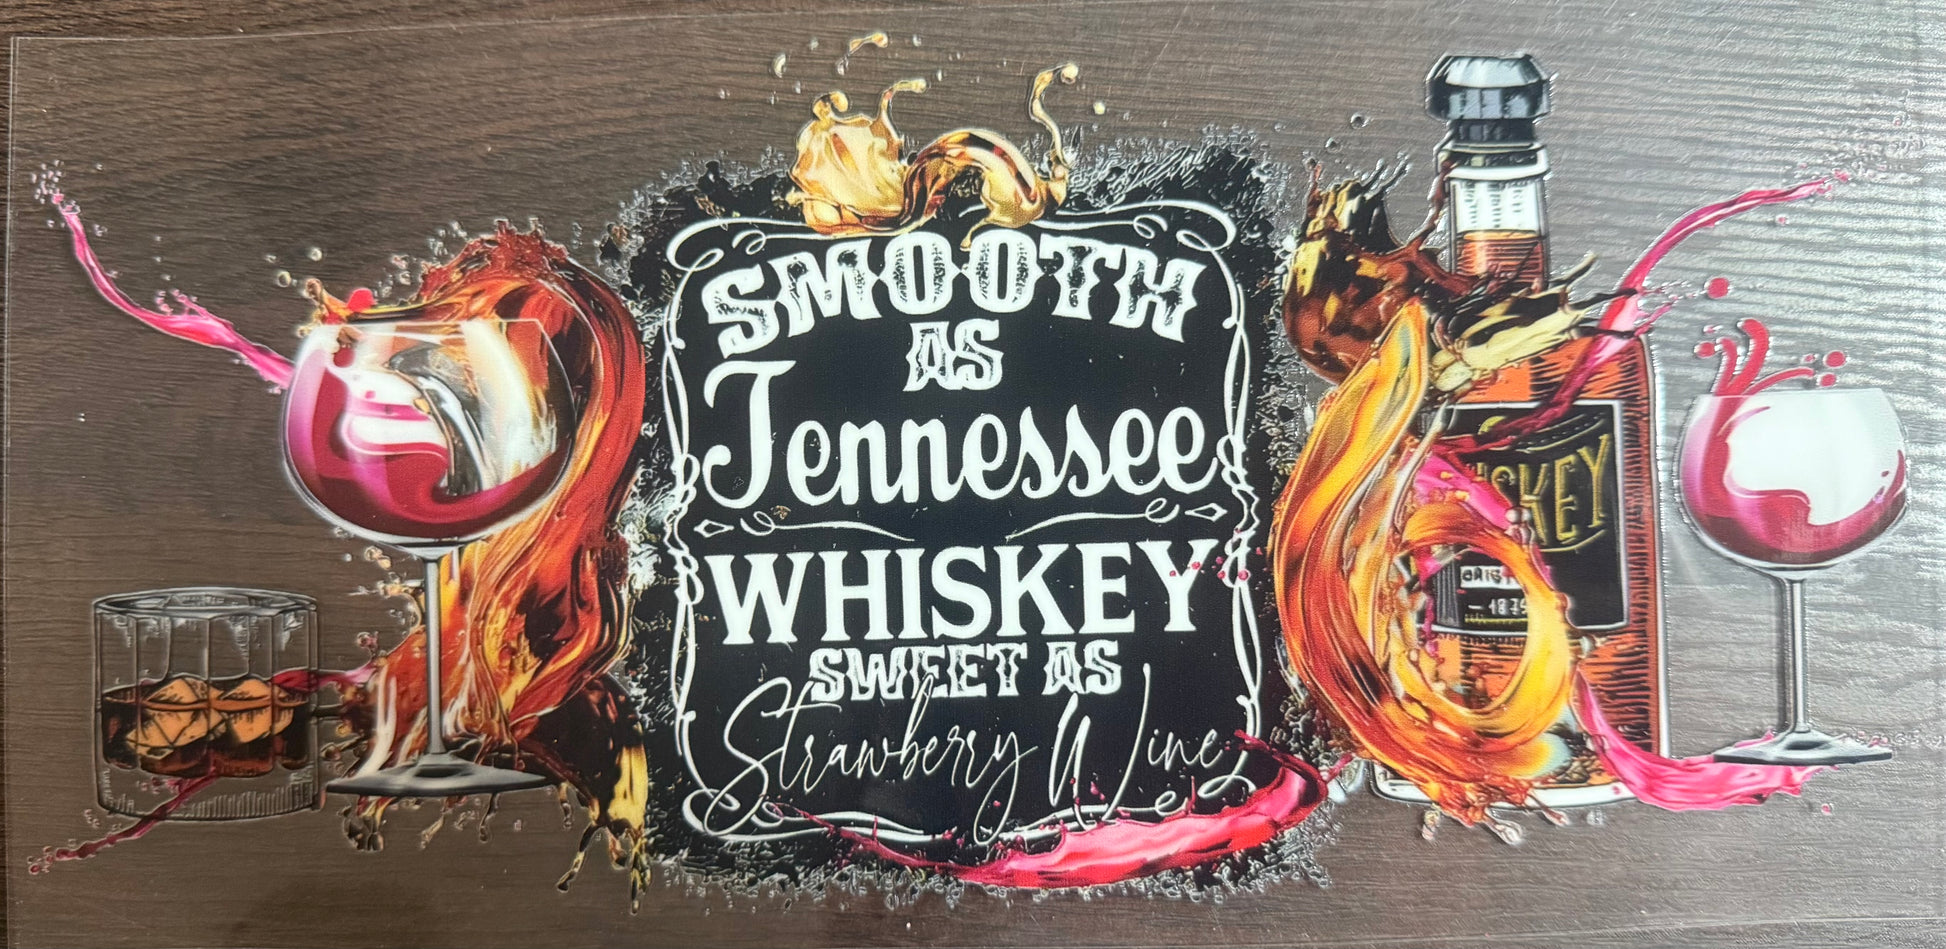 SMOOTH
AS
Tennessee
WHISKEY
SWEET AS
Strawberry Wine
WHISKEY